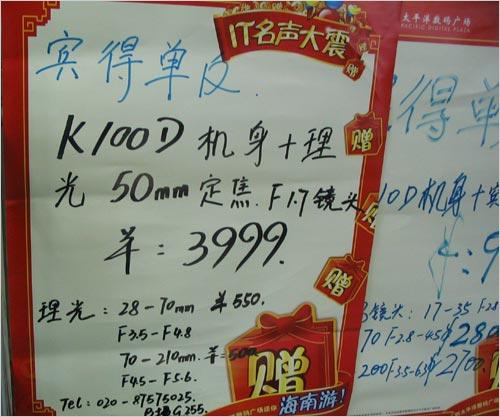 IT名声大震
宾得单反
K100D 机身+理
光 50mm 定焦 F1.7 镜头
羊:3999.
理光: 28-70mm 羊550.
F3.5-F4.8
70-210mm 羊:500
F4.5-F5.6.
Tel: 020-87575025.
G255.
赠
赠
赠
海南游!
太平洋数码广场
PACIFIC DIGITAL PLAZA
得单
10D机身+
镜头: 17-35 F2.8
70 F2.8-4.5
200 F3.5-6.3 2700.